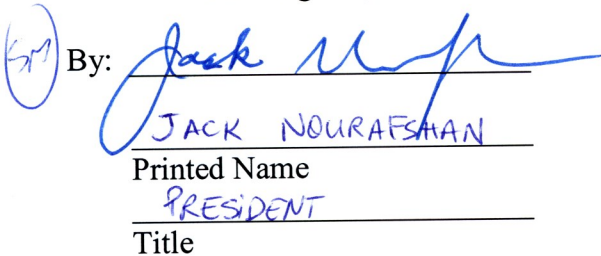 SM By: Jack
JACK NOURAFSHAN
Printed Name
PRESIDENT
Title